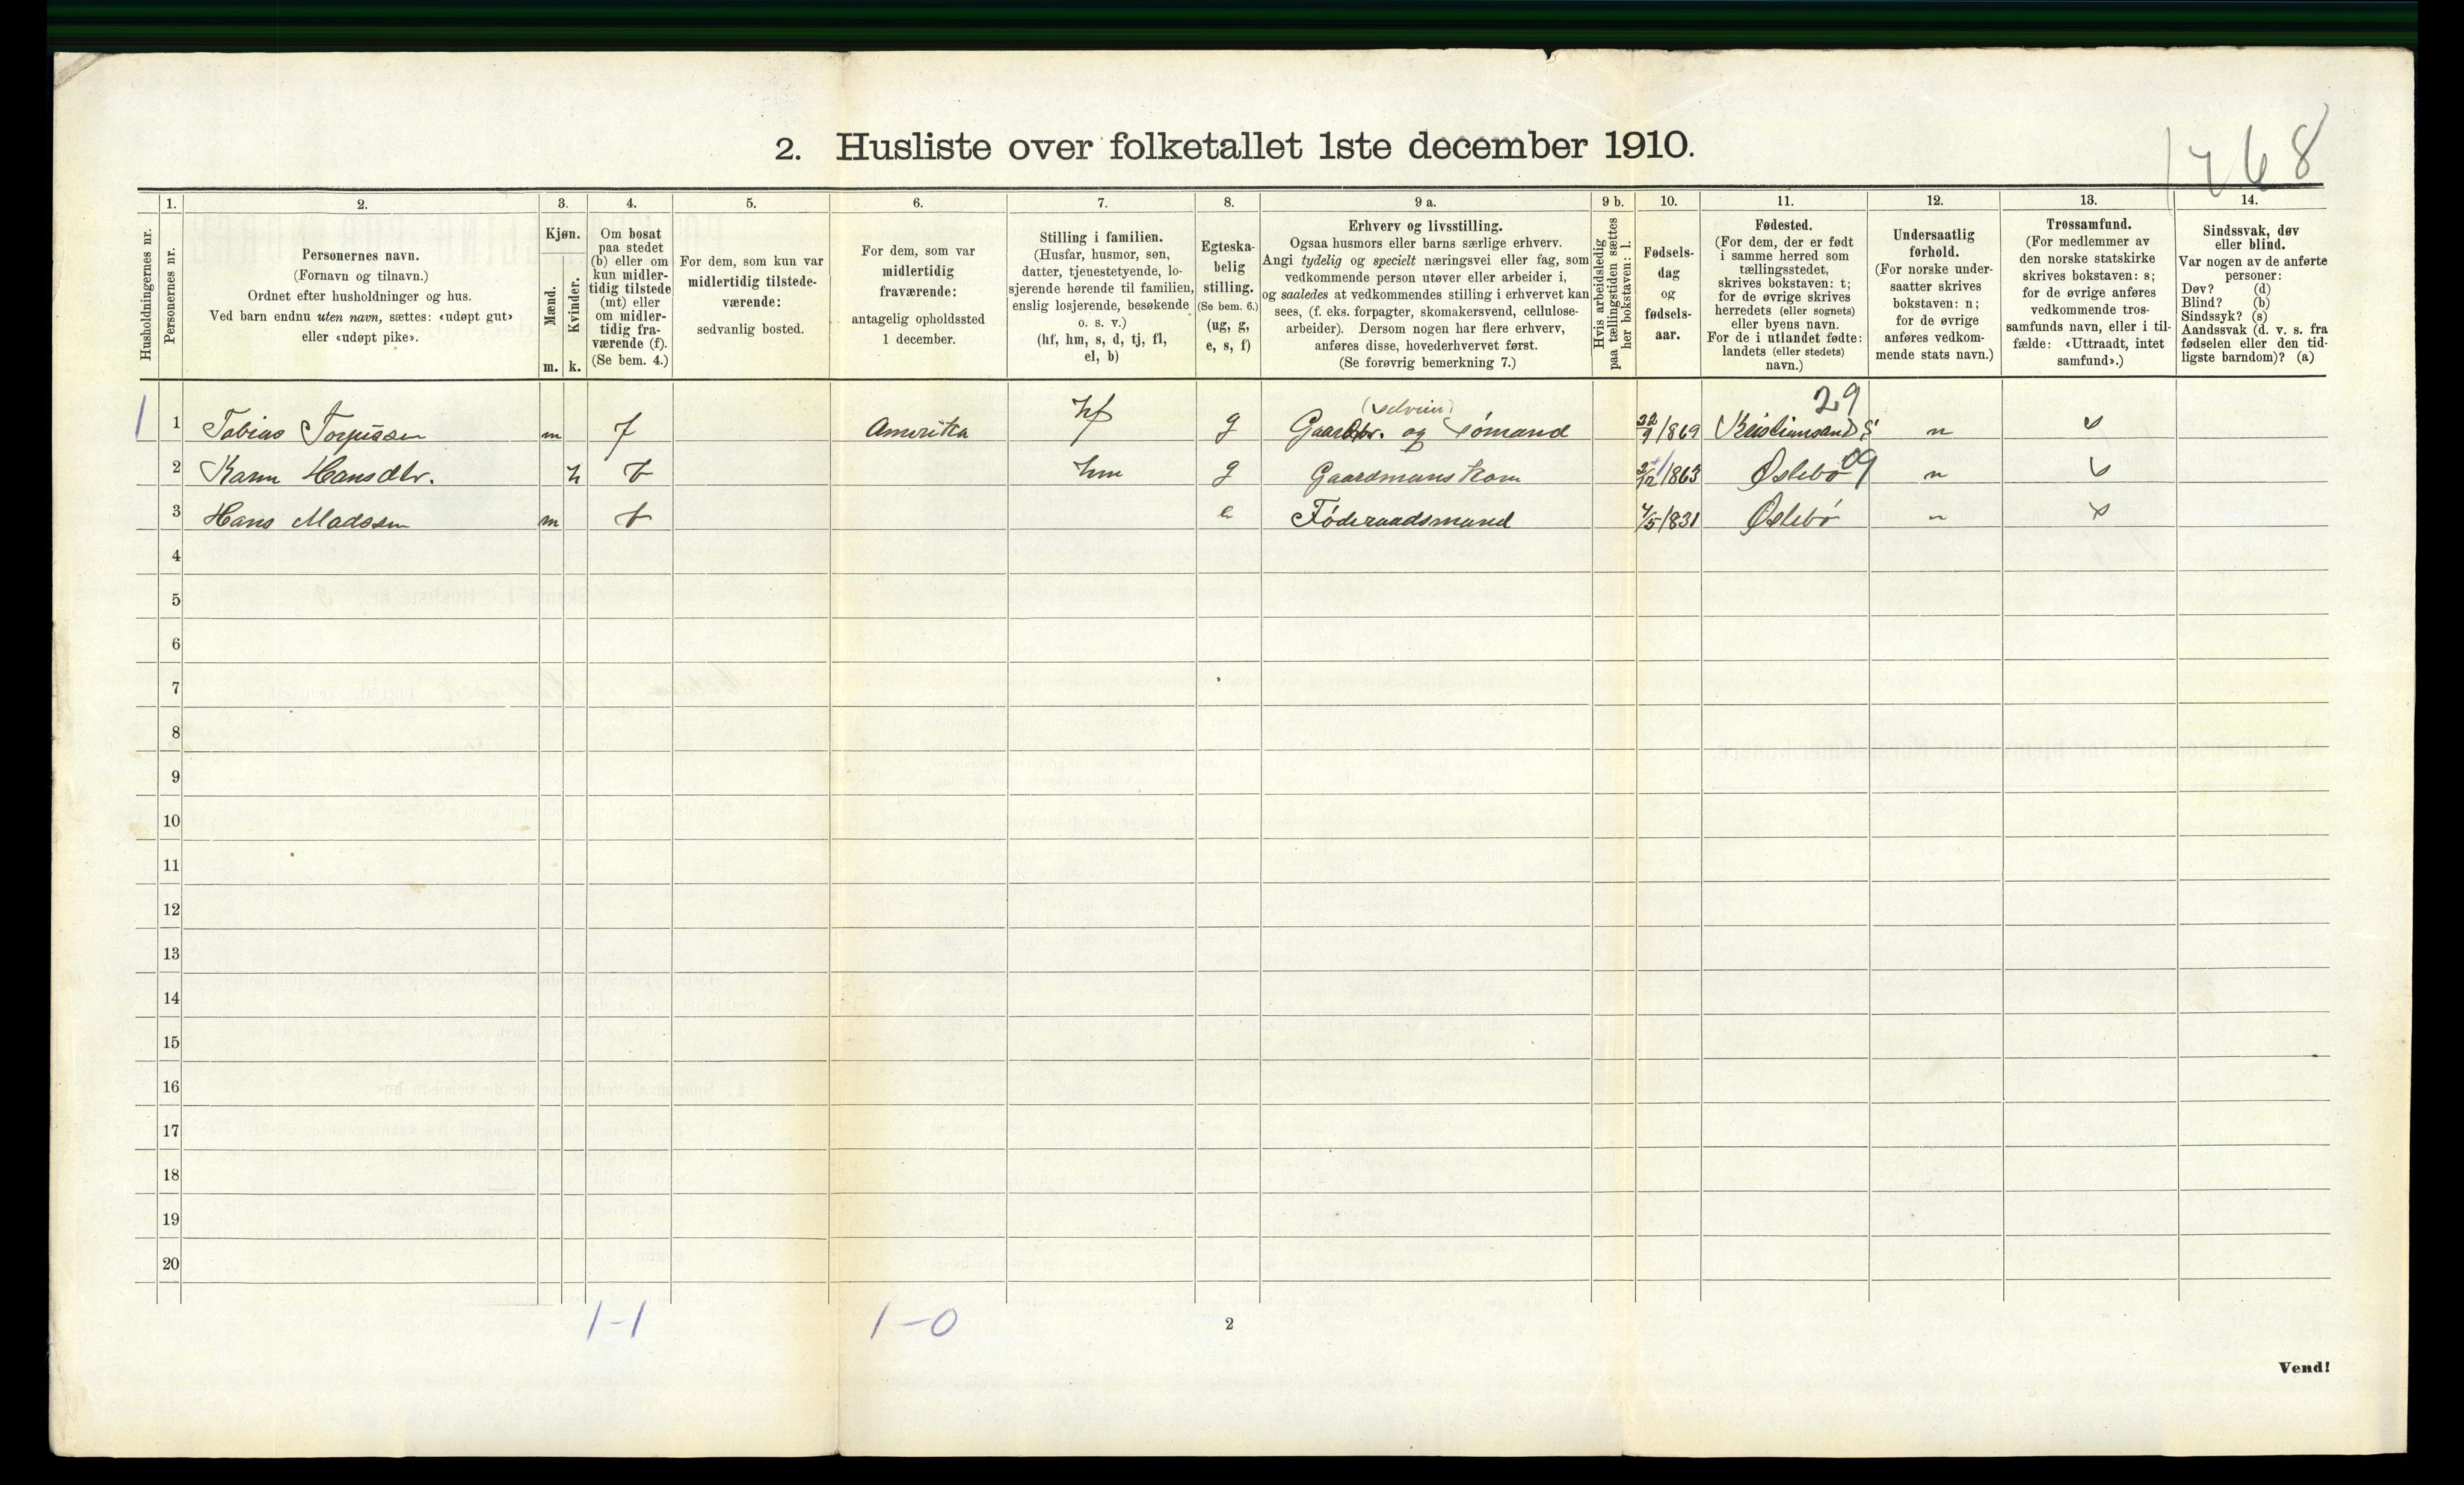 1768
2. Husliste over folketallet 1ste december 1910.
1. 2. 3. 4. 5. 6. 7. 8. 9 a. 9 b. 10. 11. 12. 13. 14.
Husholdningernes nr.
Personernes nr.
Personernes navn.
(Fornavn og tilnavn.)
Ordnet efter husholdninger og hus.
Ved barn endnu uten navn, sættes: «udøpt gut»
eller «udøpt pike».
Kjøn.
Mænd.
Kvinder.
m. k.
Om bosat
paa stedet
(b) eller om
kun midler-
tidig tilstede
(mt) eller
om midler-
tidig fra-
værende (f).
(Se bem. 4.)
For dem, som kun var
midlertidig tilstede-
værende:
sedvanlig bosted.
For dem, som var
midlertidig
fraværende:
antagelig opholdssted
1 december.
Stilling i familien.
(Husfar, husmor, søn,
datter, tjenestetyende, lo-
sjerende hørende til familien,
enslig losjerende, besøkende
o. s. v.)
(hf, hm, s, d, tj, fl,
el, b)
Egteska-
belig
stilling.
(Se bem. 6.)
(ug, g,
e, s, f)
Erhverv og livsstilling.
Ogsaa husmors eller barns særlige erhverv.
Angi tydelig og specielt næringsvei eller fag, som
vedkommende person utøver eller arbeider i,
og saaledes at vedkommendes stilling i erhvervet kan
sees, (f. eks. forpagter, skomakersvend, cellulose-
arbeider). Dersom nogen har flere erhverv,
anføres disse, hovederhvervet først.
(Se forøvrig bemerkning 7.)
Hvis arbeidsledig
paa tællingstiden sættes
her bokstaven: l.
Fødsels-
dag
og
fødsels-
aar.
Fødested.
(For dem, der er født
i samme herred som
tællingsstedet,
skrives bokstaven: t;
for de øvrige skrives
herredets (eller sognets)
eller byens navn.
For de i utlandet fødte:
landets (eller stedets)
navn.)
Undersaatlig
forhold.
(For norske under-
saatter skrives
bokstaven: n;
for de øvrige
anføres vedkom-
mende stats navn.)
Trossamfund.
(For medlemmer av
den norske statskirke
skrives bokstaven: s;
for de øvrige anføres
vedkommende tros-
samfunds navn, eller i til-
fælde: «Uttraadt, intet
samfund».)
Sindssvak, døv
eller blind.
Var nogen av de anførte
personer:
Døv? (d)
Blind? (b)
Sindssyk? (s)
Aandssvak (d. v. s. fra
fødselen eller den tid-
ligste barndom)? (a)
29
1 1 Tobias Torjussen m f Amerika hf g Gaardbr. og Sømand /9 1869 Kristiansand S. n s
2 Karen Hansdtr. k b hm g Gaardmanskone /12 1863 Øslebø 09 n s
3 Hans Madssen m b e Føderaadsmand 4/5 1831 Øslebø n s
4
5
6
7
8
9
10
11
12
13
14
15
16
17
18
19
20
1-1 1-0
2
Vend!